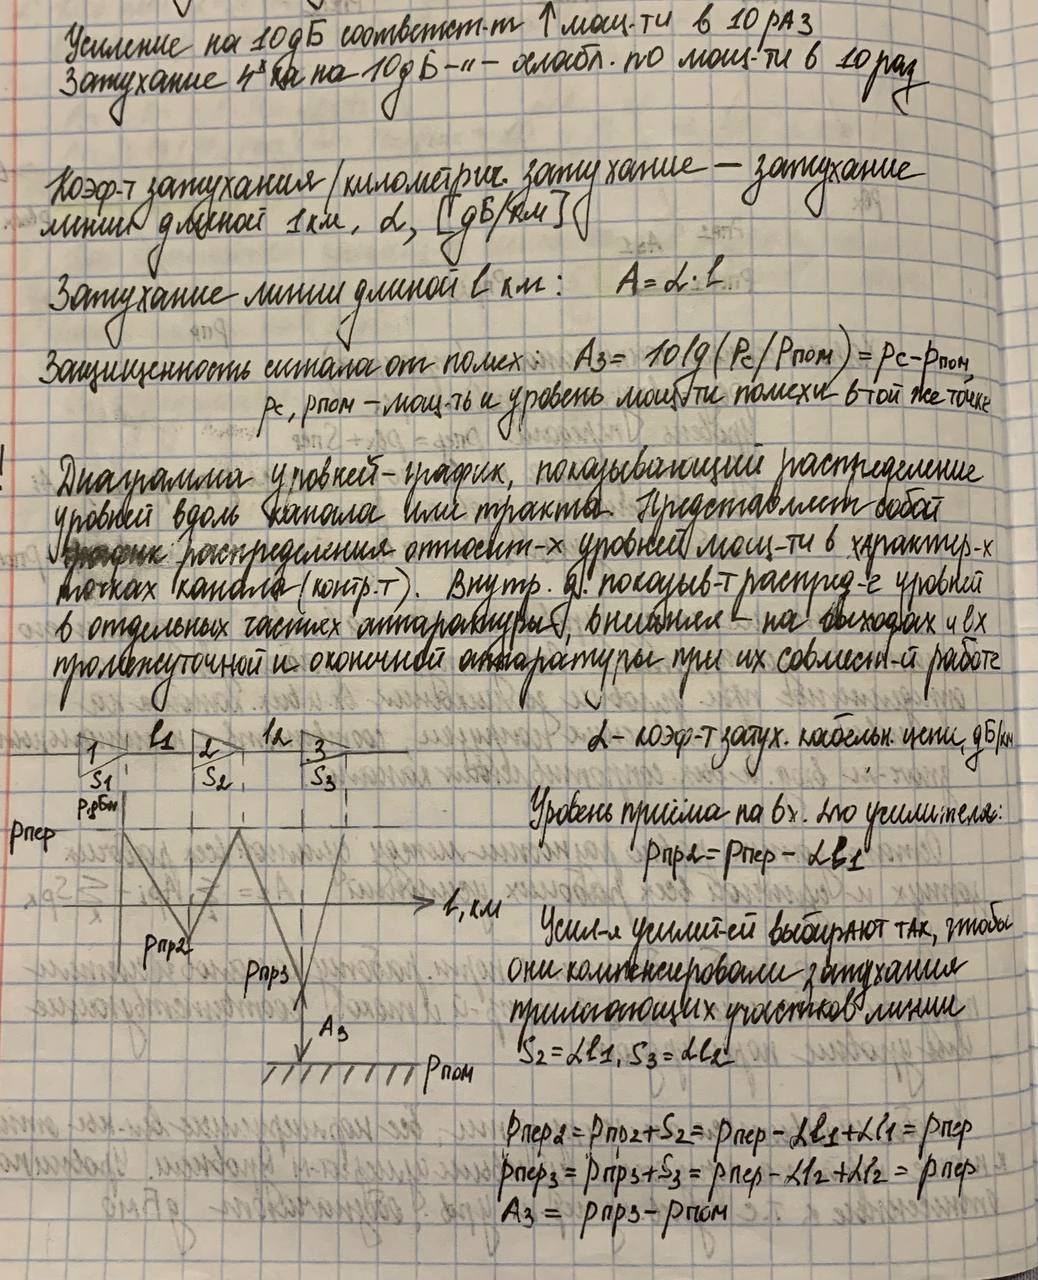 Усиление на 10 дБ соответст-т ↑ мощ-ти в 10 раз
Затухание на 10 дБ -"- ослабл. по мощ-ти в 10 раз
Коэф-т затухания/километрич. затухание — затухание
линии длиной 1 км, α, [дБ/км]
Затухание линии длиной l км: A = α·l
Защищенность сигнала от помех: Aз = 10lg(Pс/Pпом) = pс - pпом,
pс, pпом - мощ-ть и уровень мощ-ти помехи в той же точке
! Диаграмма уровней - график, показывающий распределение
уровней вдоль канала или тракта. Представляет собой
график распределения относит-х уровней мощ-ти в характер-х
точках канала (контр-т). Внутр. д. показыв-т распред-е уровней
в отдельных частях аппаратуры, внешняя - на выходах и вх
промежуточной и оконечной аппаратуры при их совмест-й работе
1 l1 2 l2 3
S1 S2 S3
p, дБм
pпер
l, км
pпр2
pпр3
Aз
pпом
α - коэф-т затух. кабельн. цепи, дБ/км
Уровень приёма на вх. 2го усилителя:
pпр2 = pпер - αl1
Усил-я усилит-ей выбирают так, чтобы
они компенсировали затухания
прилегающих участков линии
S2 = αl1, S3 = αl2
pпер2 = pпр2 + S2 = pпер - αl1 + αl1 = pпер
pпер3 = pпр3 + S3 = pпер - αl2 + αl2 = pпер
Aз = pпр3 - pпом